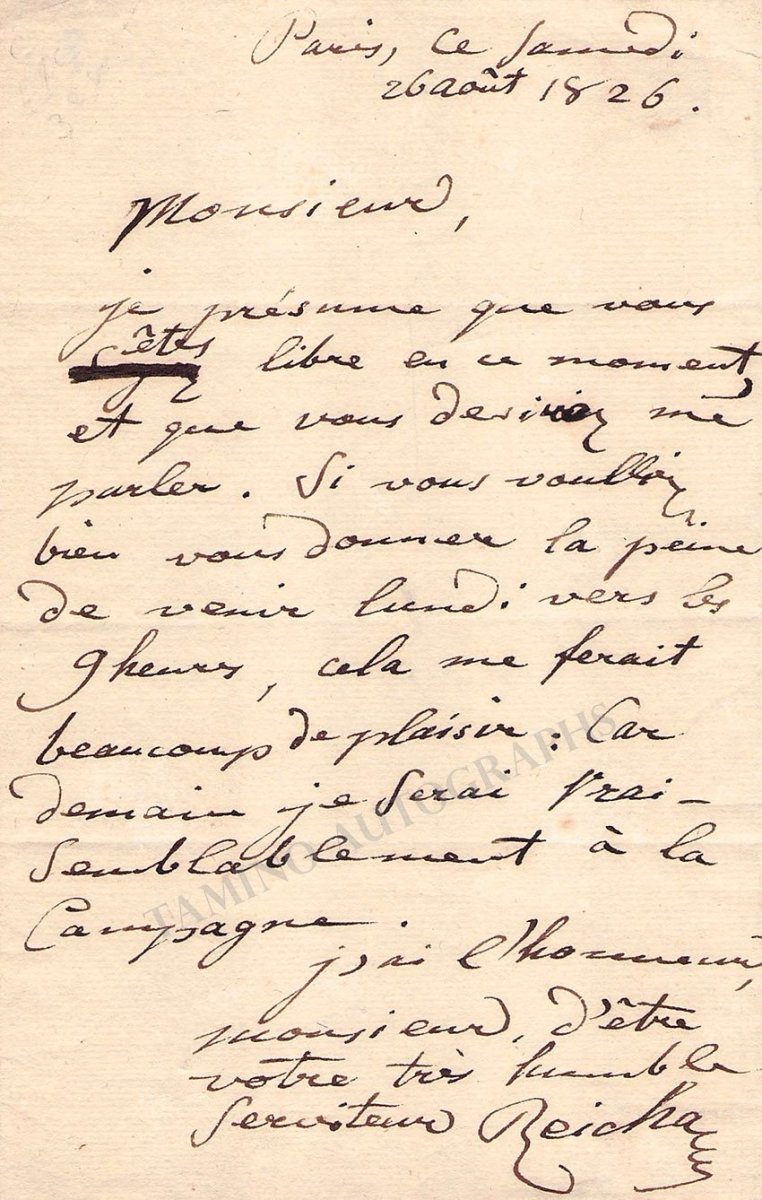 Paris, ce Samedi
26 août 1826.
Monsieur,
je présume que vous
êtes libre en ce moment,
et que vous desiriez me
parler. Si vous voulliez
bien vous donner la peine
de venir lundi vers les
9 heures, cela me ferait
beaucoup de plaisir : Car
demain je Serai Vrai-
Semblablement à la
Campagne.
j'ai l'honneur,
monsieur, d'être
votre très humble
Serviteur Reicha
TAMINO AUTOGRAPHS